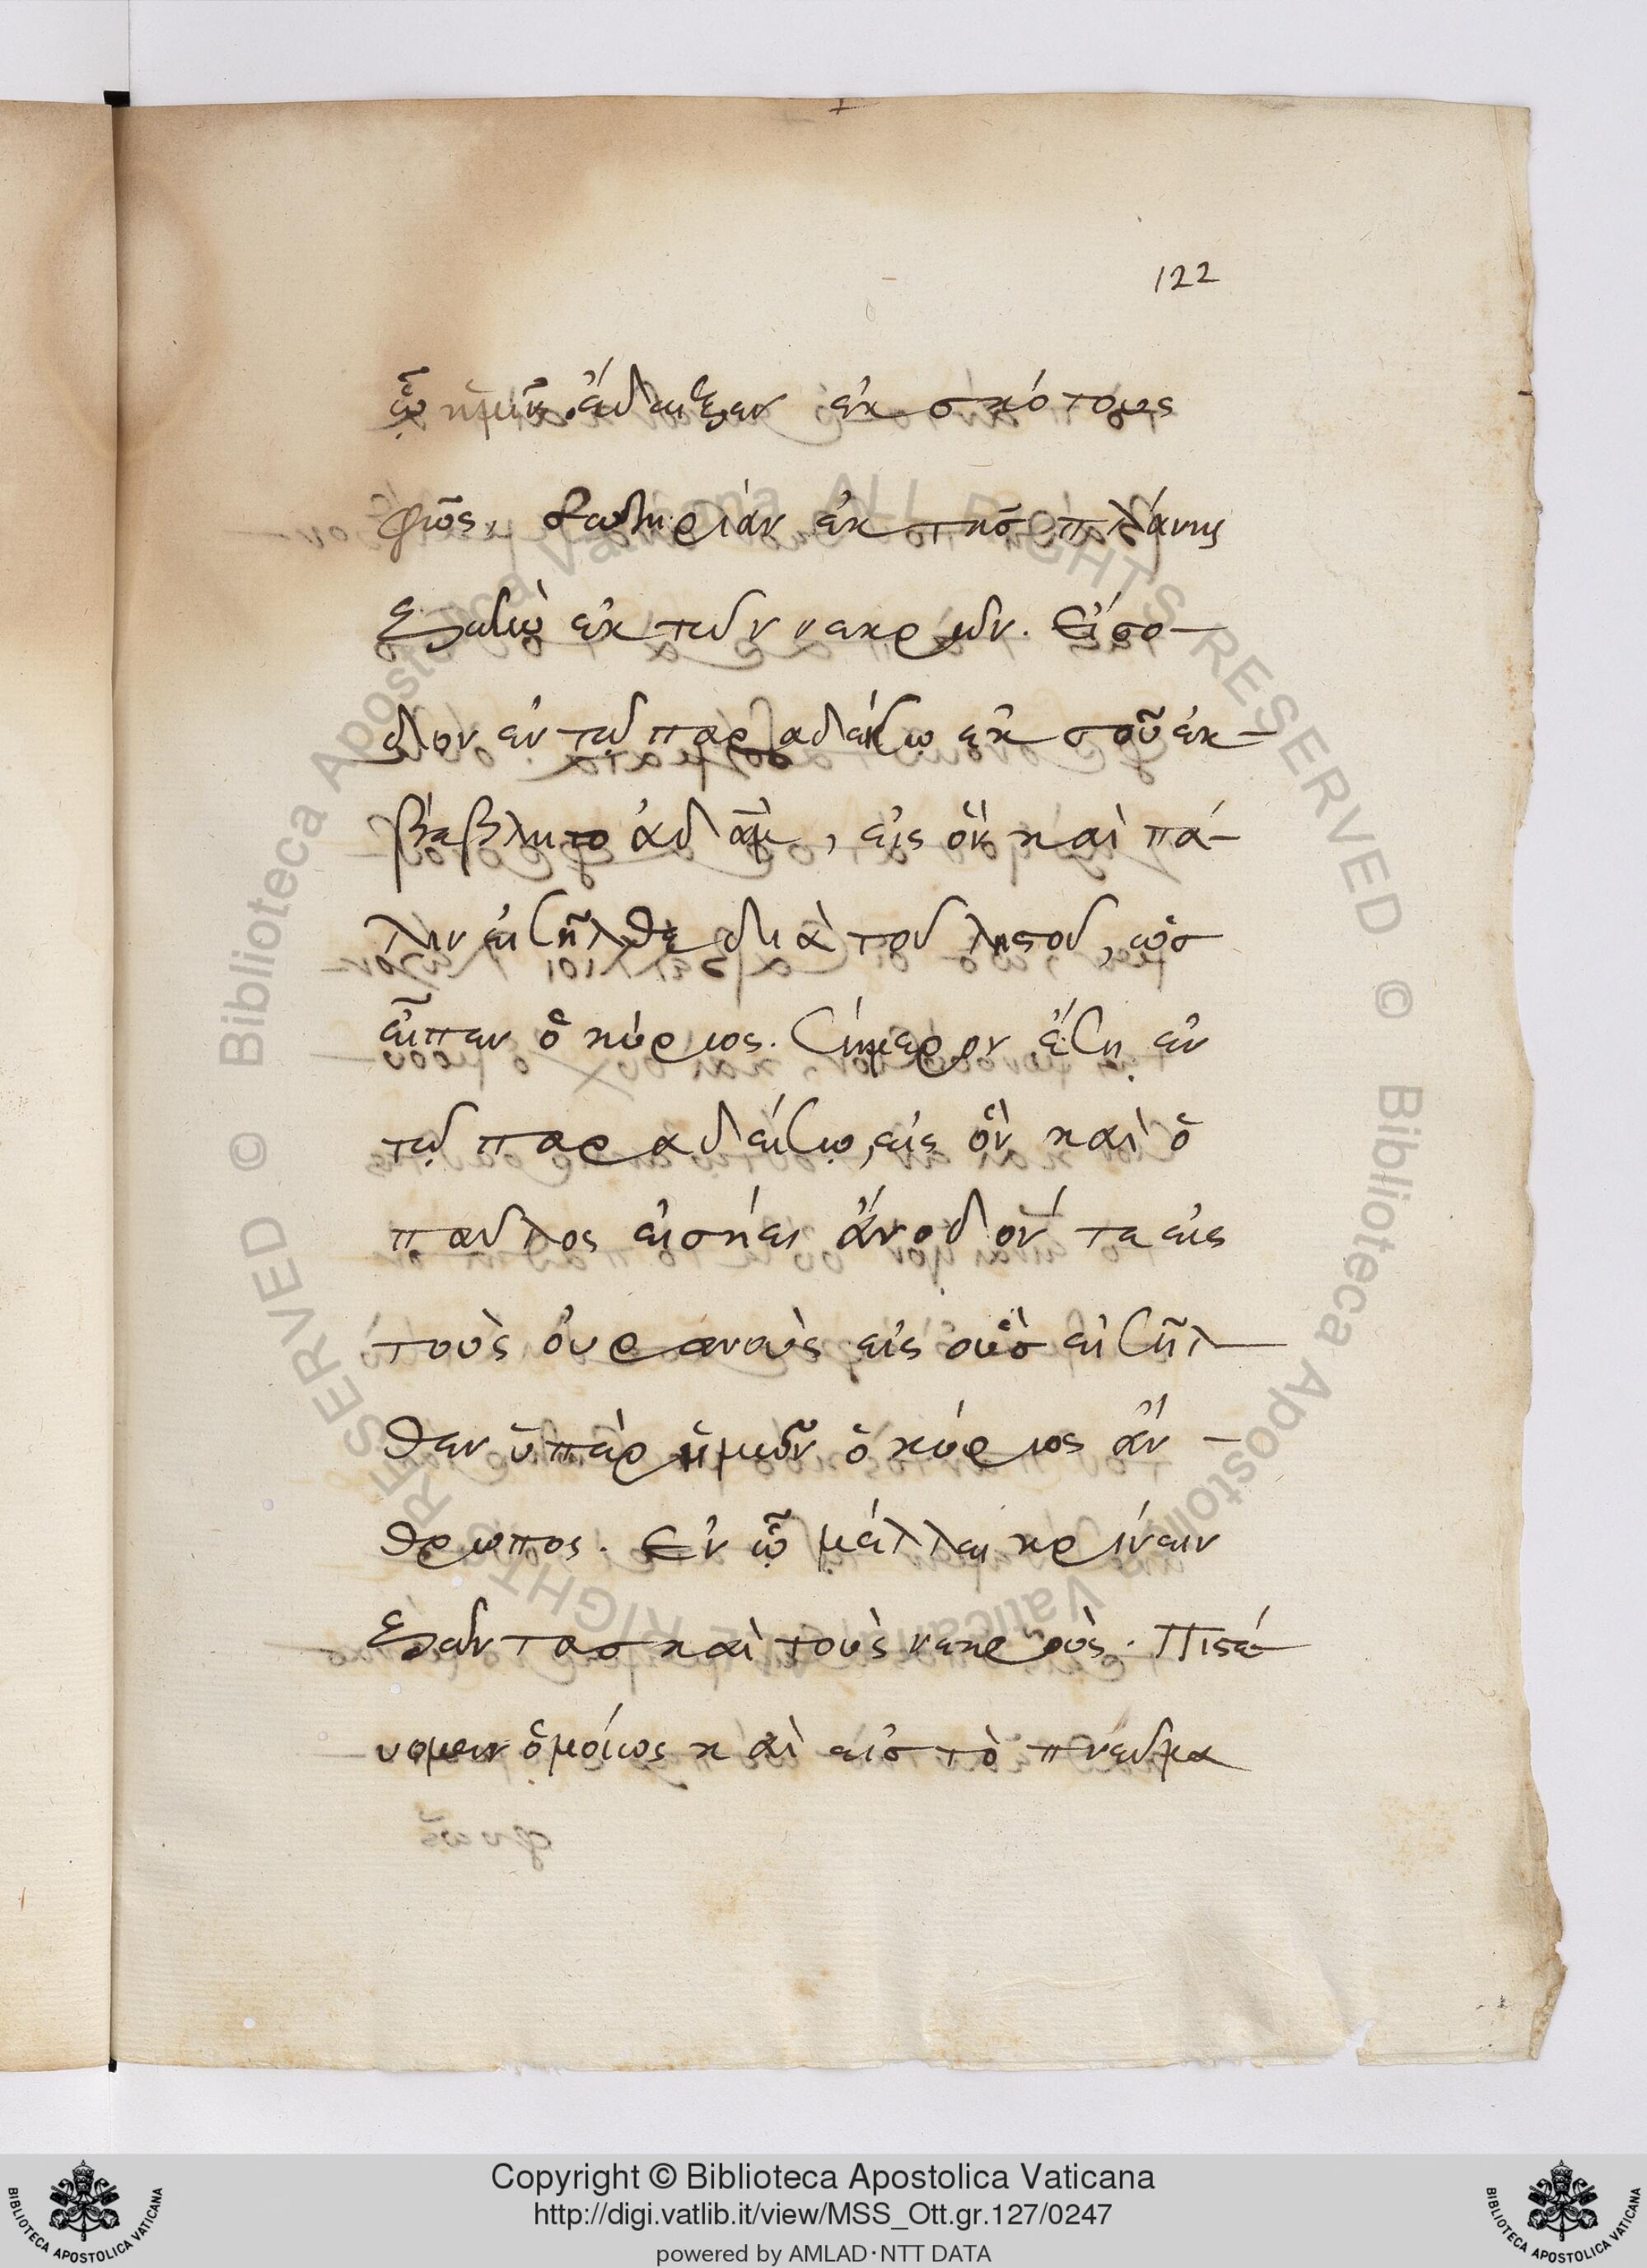 122
ᾧ ἡμῖν ἔδειξεν ἐκ σκότους
φῶς, σωτηρίαν ἐκ τῆς πλάνης
ζωὴν ἐκ τῶν νεκρῶν. Εἴσο-
δον ἐν τῷ παραδείσῳ ἐξ οὗ ἐκ-
βέβλητο ἀδὰμ, εἰς ὃν καὶ πά-
λιν εἰσῆλθε διὰ τοῦ λῃστοῦ, ὡς
εἶπεν ὁ κύριος. Σήμερον ἔσῃ ἐν
τῷ παραδείσῳ, εἰς ὃν καὶ ὁ
παῦλος εἰσῄει ἄνοδόν τε εἰς
τοὺς οὐρανοὺς εἰς οὓς εἰσῆλ
θεν ὑπὲρ ἡμῶν ὁ κύριος ἄν-
θρωπος. Ἐν ᾧ μέλλει κρίνειν
ζῶντας καὶ τοὺς νεκρούς. Πιστεύ
ομεν ὁμοίως καὶ εἰς τὸ πνεῦμα
© Biblioteca Apostolica Vaticana ALL RIGHTS RESERVED © Biblioteca Apostolica Vaticana ALL RIGHTS RESERVED
BIBLIOTECA APOSTOLICA VATICANA
Copyright © Biblioteca Apostolica Vaticana
http://digi.vatlib.it/view/MSS_Ott.gr.127/0247
powered by AMLAD·NTT DATA
BIBLIOTECA APOSTOLICA VATICANA